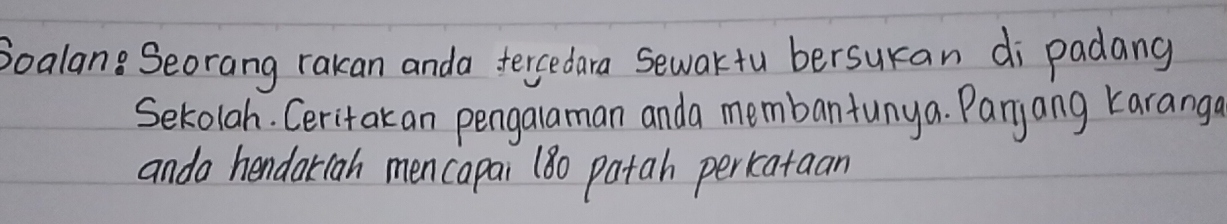 Soalan: Seorang rakan anda tercedara Sewaktu bersukan di padang
Sekolah. Ceritakan pengalaman anda membantunya. Panjang karanga
anda hendaklah mencapai 180 patah perkataan